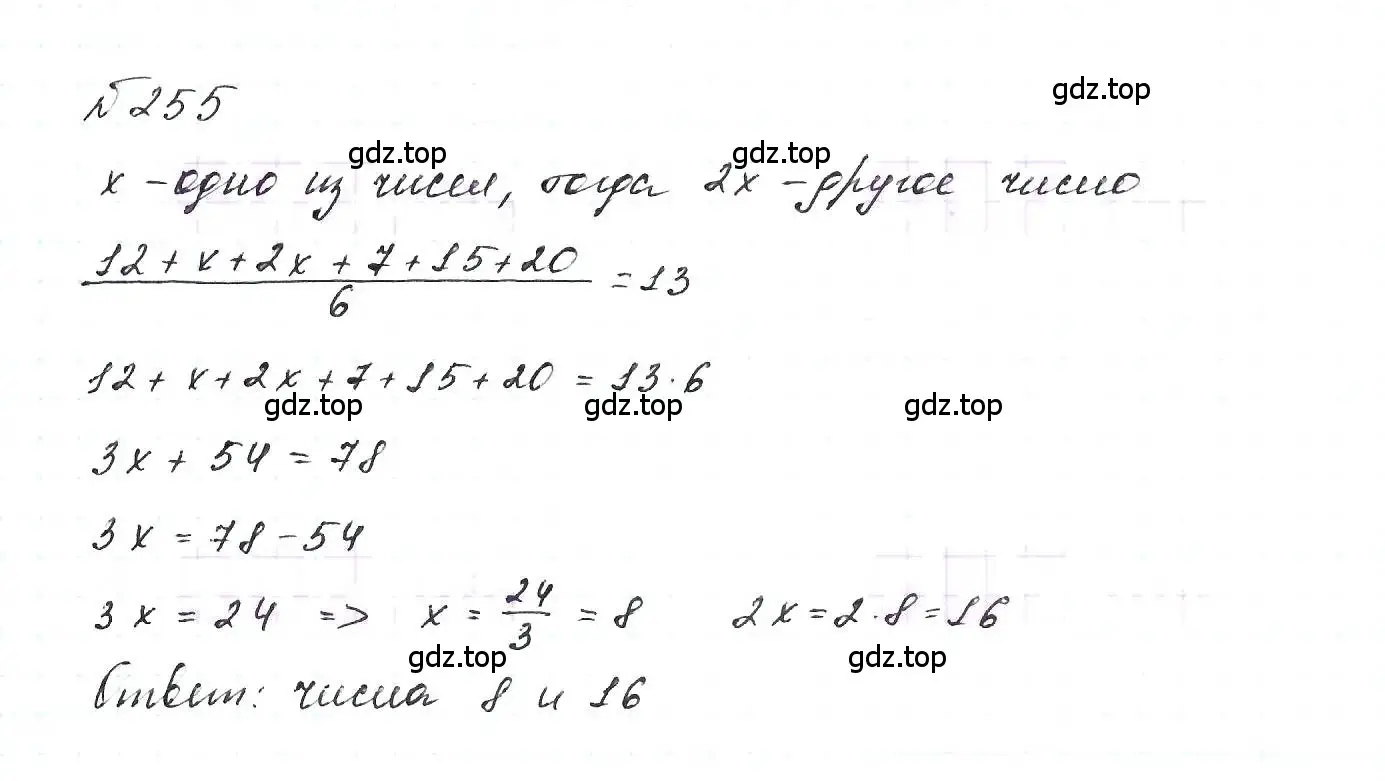 №255
gdz.top
gdz.top
gdz.top
x - одно из чисел, тогда 2x - другое число
(12 + x + 2x + 7 + 15 + 20)/6 = 13
12 + x + 2x + 7 + 15 + 20 = 13·6
gdz.top
gdz.top
gdz.top
3x + 54 = 78
3x = 78 - 54
3x = 24 => x = 24/3 = 8 2x = 2·8 = 16
gdz.top
gdz.top
Ответ: числа 8 и 16